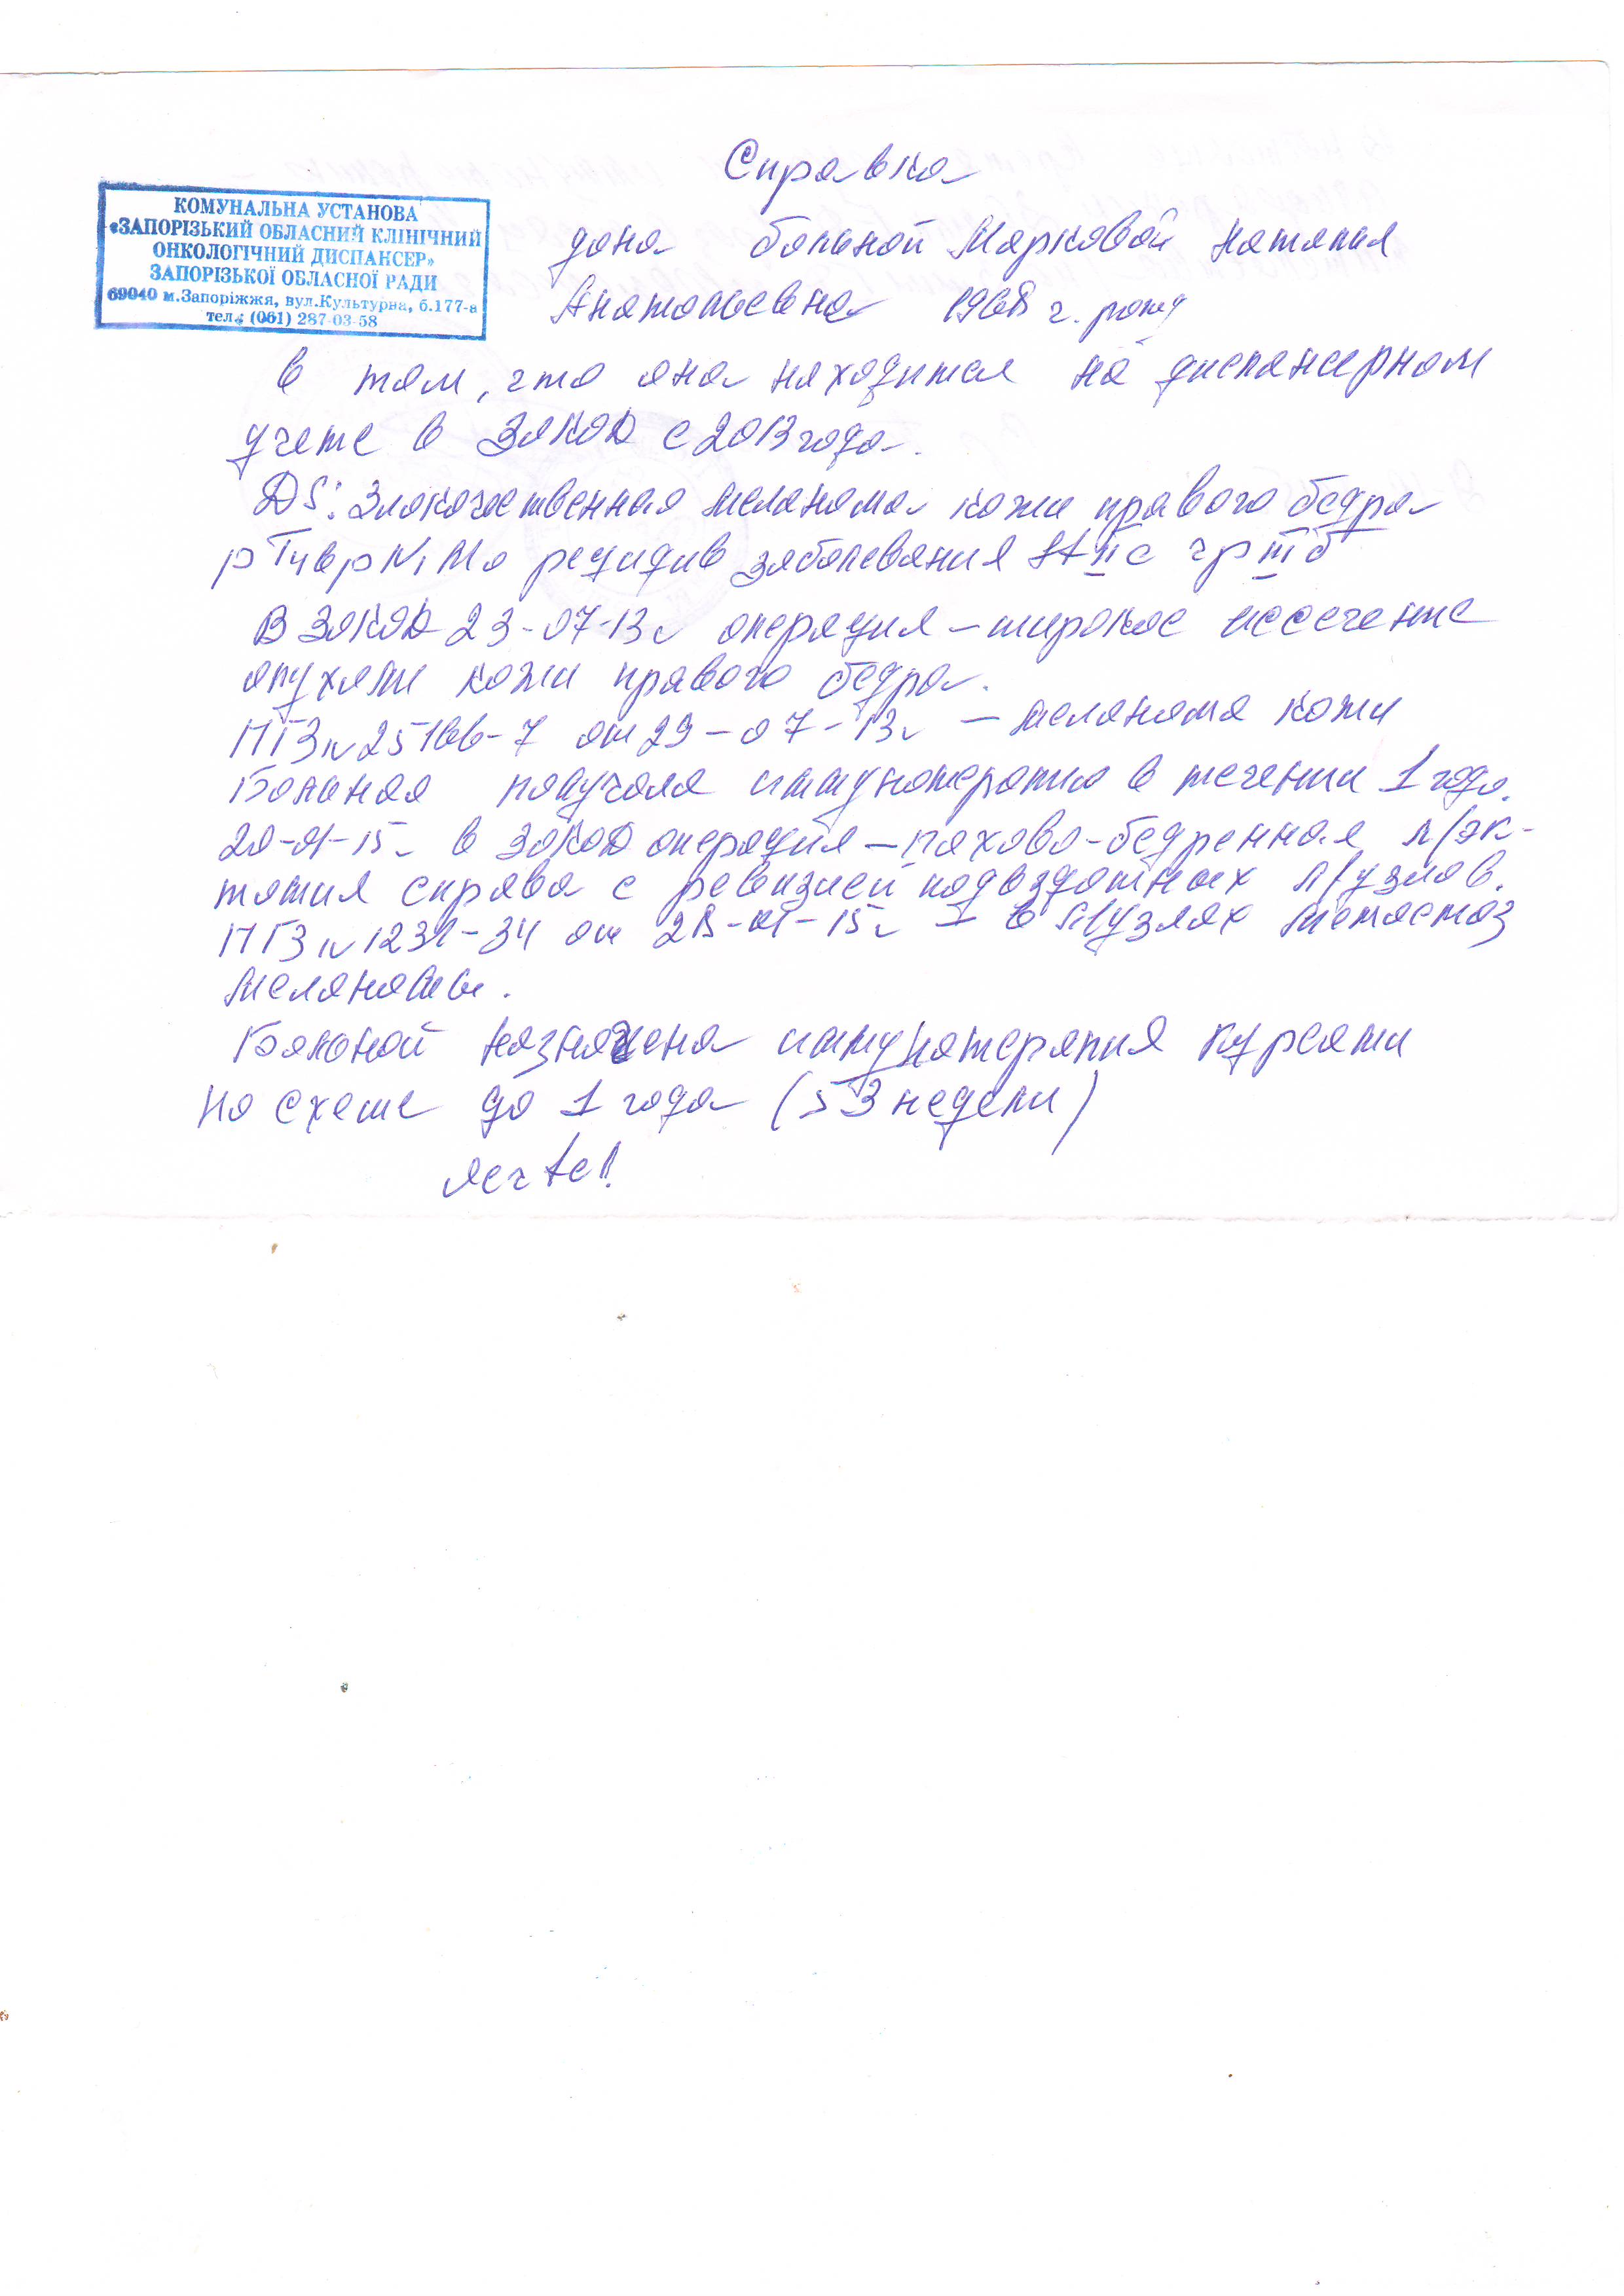 Справка
КОМУНАЛЬНА УСТАНОВА
«ЗАПОРІЗЬКИЙ ОБЛАСНИЙ КЛІНІЧНИЙ
ОНКОЛОГІЧНИЙ ДИСПАНСЕР»
ЗАПОРІЗЬКОЇ ОБЛАСНОЇ РАДИ
69040 м.Запоріжжя, вул.Культурна, б.177-а
тел.: (061) 287-03-58
дана больной Марковой Наталия
Анатольевна 1968 г.
в том, что она находится на диспансерном
учете в ЗОКОД с 2013 года.
DS: Злокачественная меланома кожи правого бедра
рТ4врN1М0 рецидив заболевания St II с гр III б
В ЗОКОД 23-07-13г операция – широкое иссечение
опухоли кожи правого бедра.
ПГЗ № 25166-7 от 29-07-13г – меланома кожи
Больная получала иммунотерапию в течении 1 года.
20-01-15г в ЗОКОД операция – пахово-бедренная л/эк-
томия справа с ревизией подвздошных л/узлов.
ПГЗ № от -01-15г – в л/узлах метастаз
меланомы.
Больной назначена иммунотерапия курсами
по схеме до 1 года (53 недели)